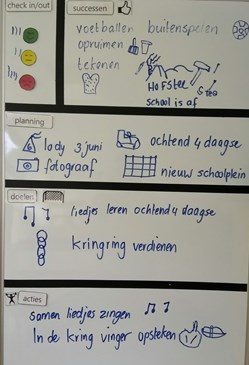 check in/out
successen
voetballen buitenspelen
opruimen
tekenen
Hofstee
school is af
planning
lody 3 juni
ochtend 4 daagse
fotograaf
nieuw schoolplein
doelen
liedjes leren ochtend 4 daagse
kringring verdienen
acties
samen liedjes zingen
In de kring vinger opsteken